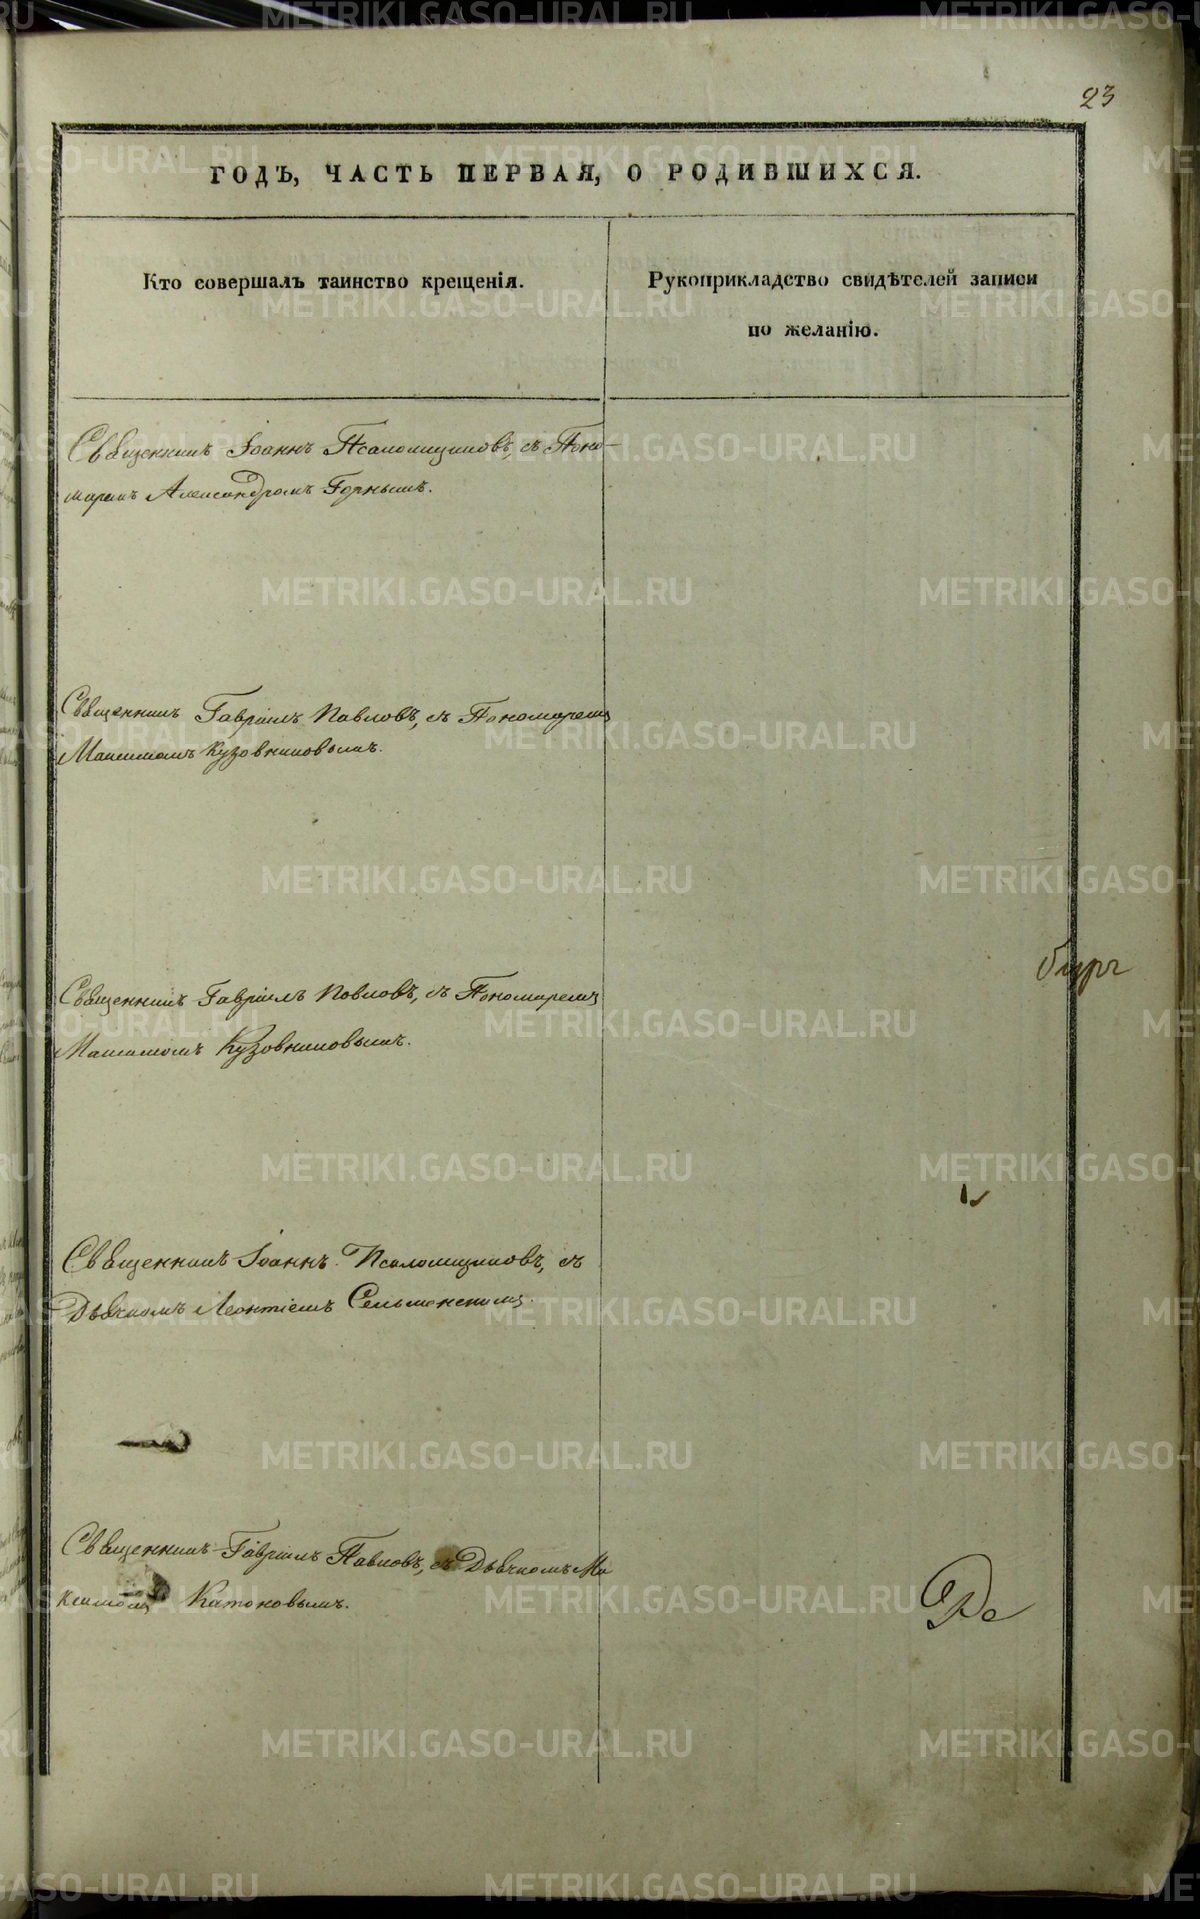 23
ГОДЪ, ЧАСТЬ ПЕРВАЯ, О РОДИВШИХСЯ.
Кто совершалъ таинство крещенія.
Рукоприкладство свидѣтелей записи
по желанію.
Священникъ Іоаннъ Псаломщиковъ, съ Поно-
маремъ Александромъ Горнымъ.
Священникъ Гавріилъ Павловъ, съ Пономаремъ
Максимомъ Кузовниковымъ.
Священникъ Гавріилъ Павловъ, съ Пономаремъ
Максимомъ Кузовниковымъ.
Священникъ Іоаннъ Псаломщиковъ, съ
Дьячкомъ Леонтіемъ
Священникъ Гавріилъ Павловъ, съ Дьячкомъ Ма
ксимомъ Катоновымъ.
METRIKI.GASO-URAL.RU